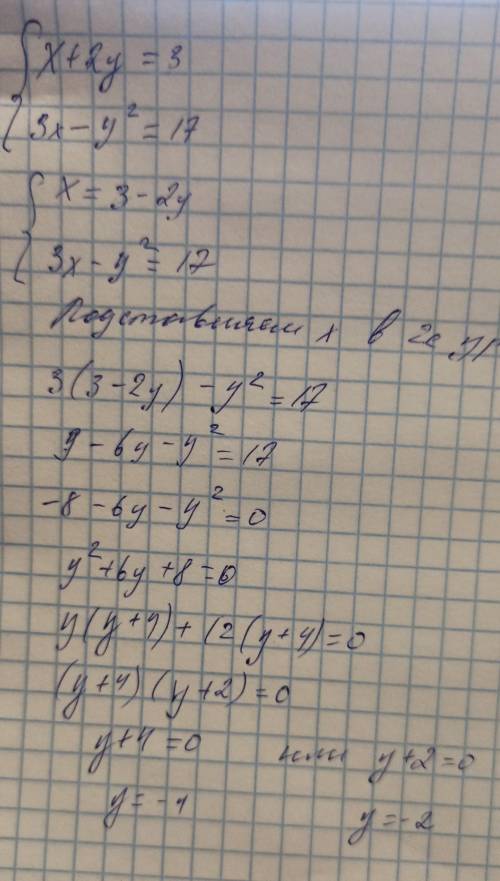 x + 2y = 3
3x - y² = 17
x = 3 - 2y
3x - y² = 17
Подставляем x в 2е
3(3 - 2y) - y² = 17
9 - 6y - y² = 17
-8 - 6y - y² = 0
y² + 6y + 8 = 0
y(y + 4) + (2(y + 4) = 0
(y + 4)(y + 2) = 0
y + 4 = 0 или y + 2 = 0
y = -4 y = -2